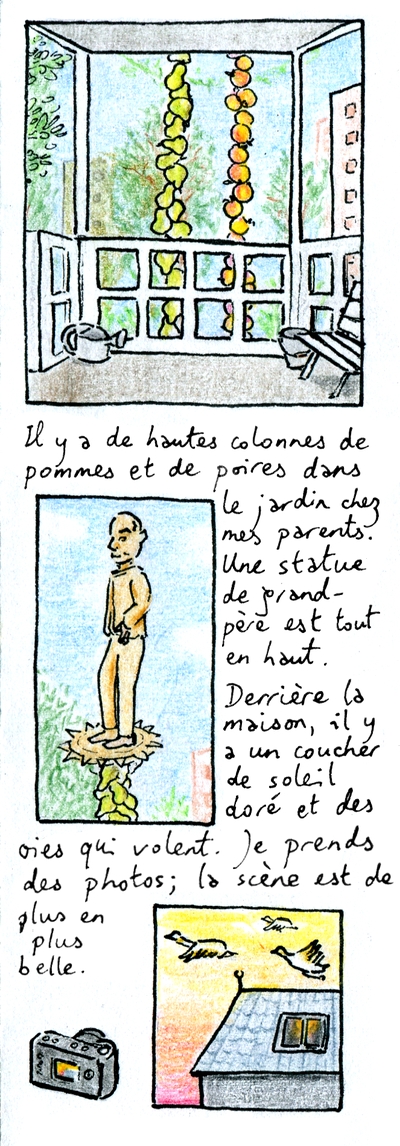 Il y a de hautes colonnes de
pommes et de poires dans
le jardin chez
mes parents.
Une statue
de grand-
père est tout
en haut.
Derrière la
maison, il y
a un coucher
de soleil
doré et des
oies qui volent. Je prends
des photos; la scène est de
plus en
plus
belle.